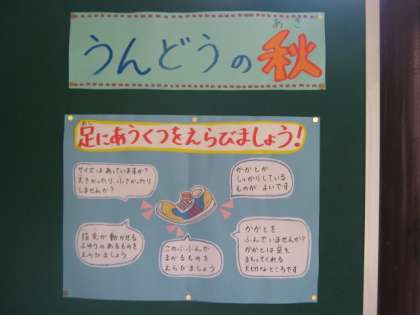 あき
うんどうの秋
あし
足にあうくつをえらびましょう!
サイズはあっていますか?
大きかったり、小さかったり
しませんか?
かかとが
しっかりしている
ものが よいです
指先が動かせる
よゆうのあるものを
えらびましょう
このぶぶんが
まがるものを
えらびましょう
かかとを
ふんでいませんか?
かかとは足を
まもってくれる
大切なところです